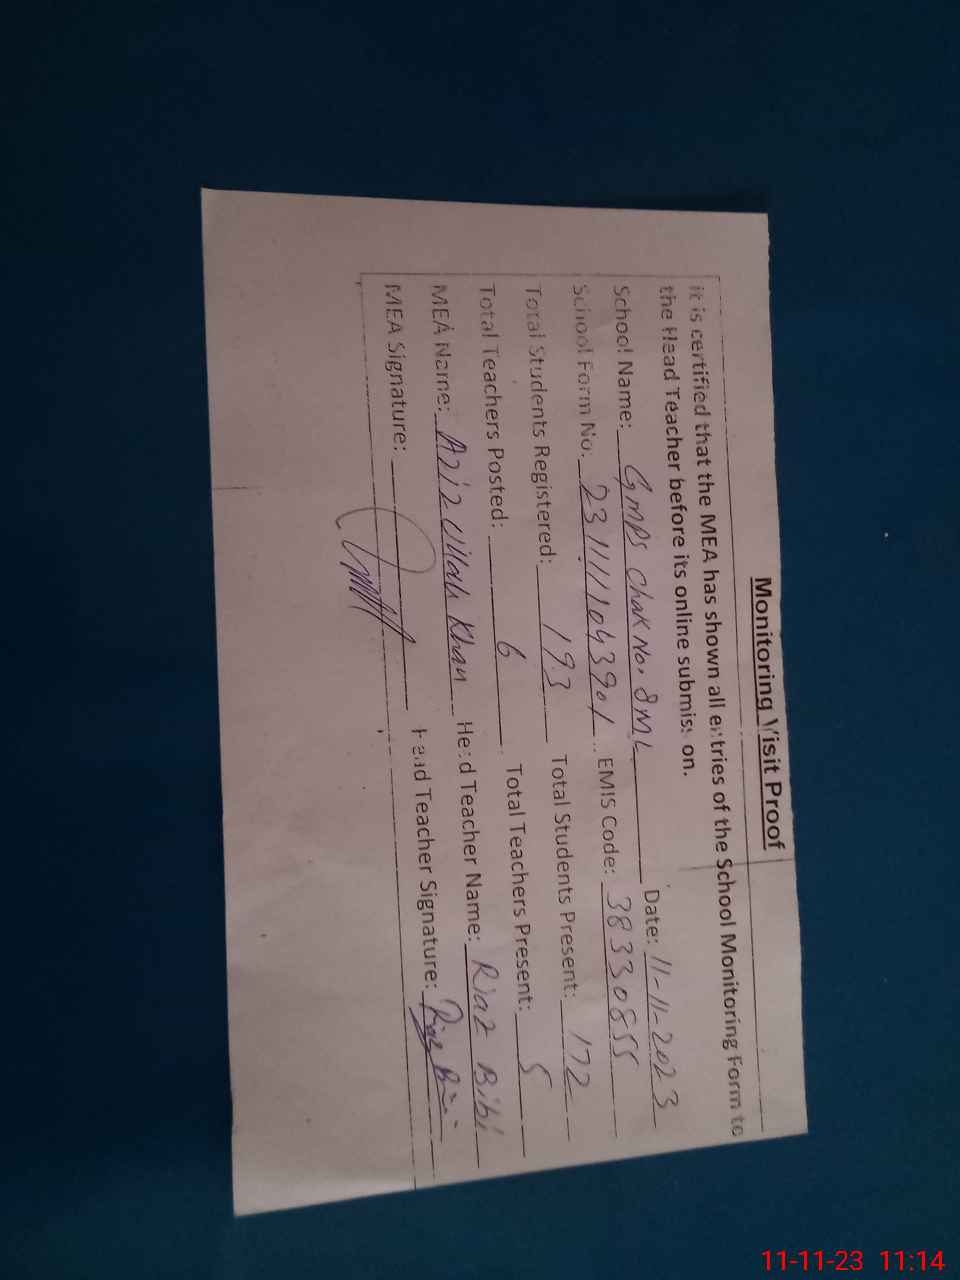 Monitoring Visit Proof
it is certified that the MEA has shown all entries of the School Monitoring Form to
the Head Teacher before its online submission.
School Name: GMPS Chak No. 8ML Date: 11-11-2023
School Form No. 2311111043901 EMIS Code: 38330855
Total Students Registered: 193 Total Students Present: 172
Total Teachers Posted: 6 Total Teachers Present: 5
MEA Name: Aziz Ullah Khan Head Teacher Name: Riaz Bibi
MEA Signature: Head Teacher Signature: Riaz Bibi
11-11-23 11:14